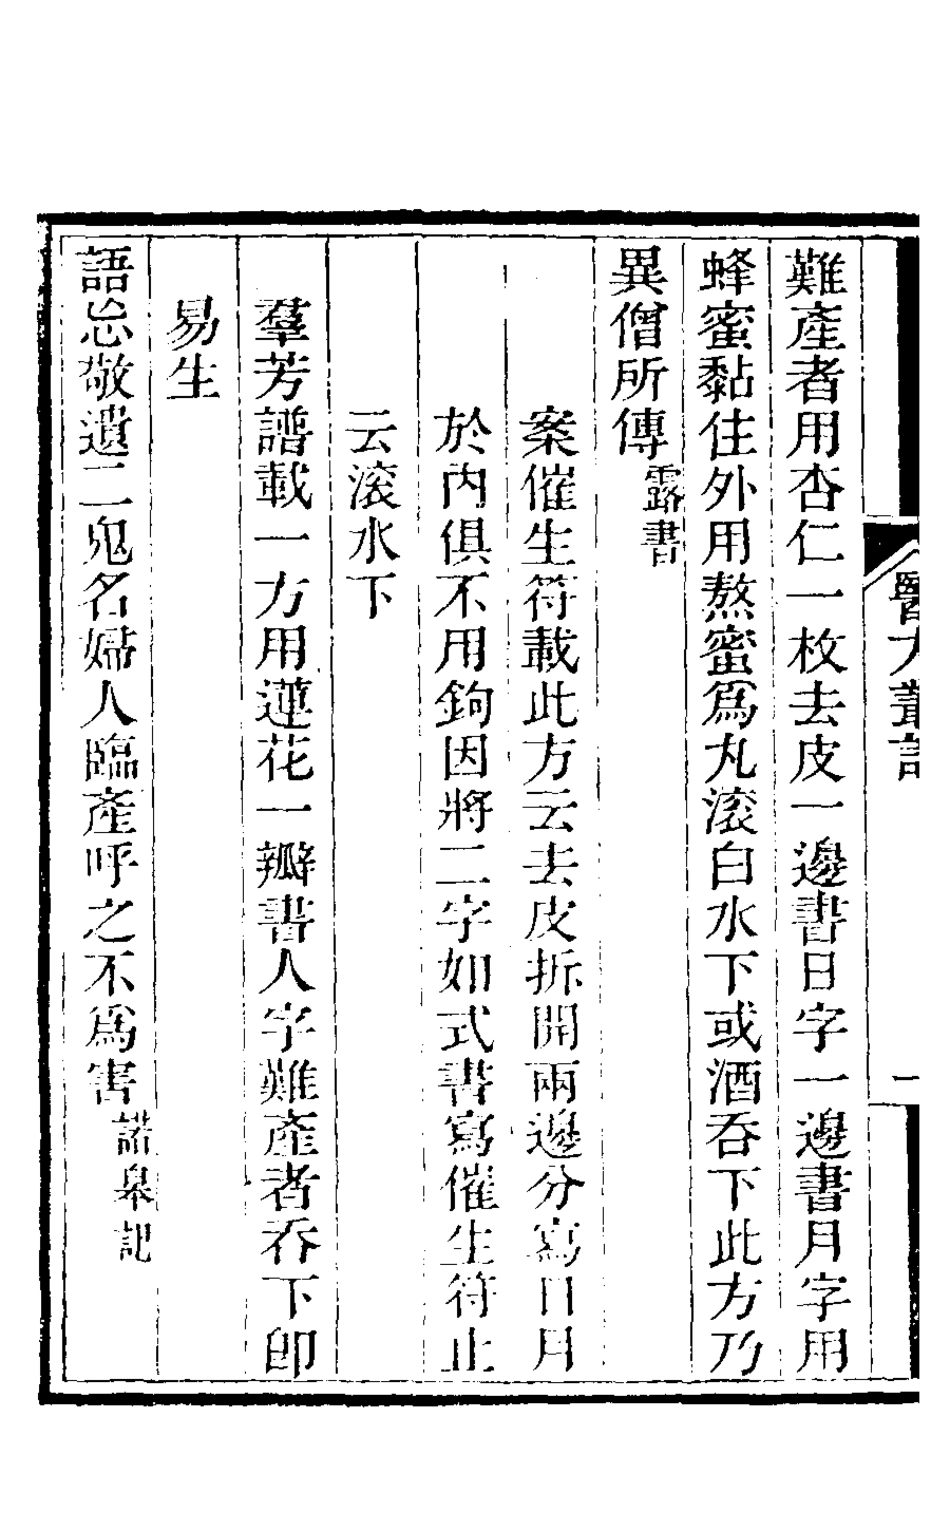 難產者用杏仁一枚去皮一邊書日字一邊書月字用
蜂蜜黏住外用熬蜜爲丸滚白水下或酒吞下此方乃
異僧所傳露書
案催生符載此方云去皮拆開兩邊分寫日月
於內俱不用鉤因將二字如式書寫催生符止
云滚水下
羣芳譜載一方用蓮花一瓣書人字難產者吞下卽
易生
語忘敬遺二鬼名婦人臨產呼之不爲害諾皋記